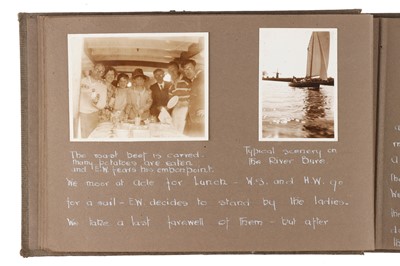 The roast beef is carved
Many potatoes are eaten
and E.W. fears his embonpoint.
Typical scenery on
the River Bure.
We moor at Acle for Lunch – W.S. and H.W. go
for a sail – E.W. decides to stand by the ladies.
We take a last farewell of them – but after